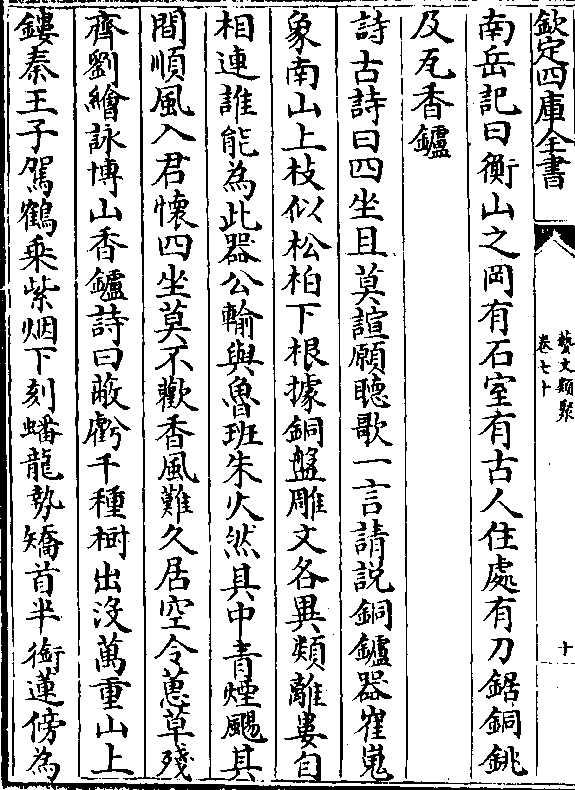 欽定四庫全書
藝文類聚
卷七十
十
南岳記曰衡山之岡有石室有古人住處有刀鋸銅銚
及瓦香鑪
詩古詩曰四坐且莫諠願聽歌一言請説銅鑪器崔嵬
象南山上枝似松柏下根據銅盤雕文各異類離婁自
相連誰能為此器公輸與魯班朱火然其中青煙颺其
間順風入君懷四坐莫不歡香風難久居空令蕙草殘
齊劉繪詠博山香鑪詩曰蔽虧千種樹出没萬重山上
鏤秦王子駕鶴乘紫烟下刻蟠龍勢矯首半銜蓮傍為